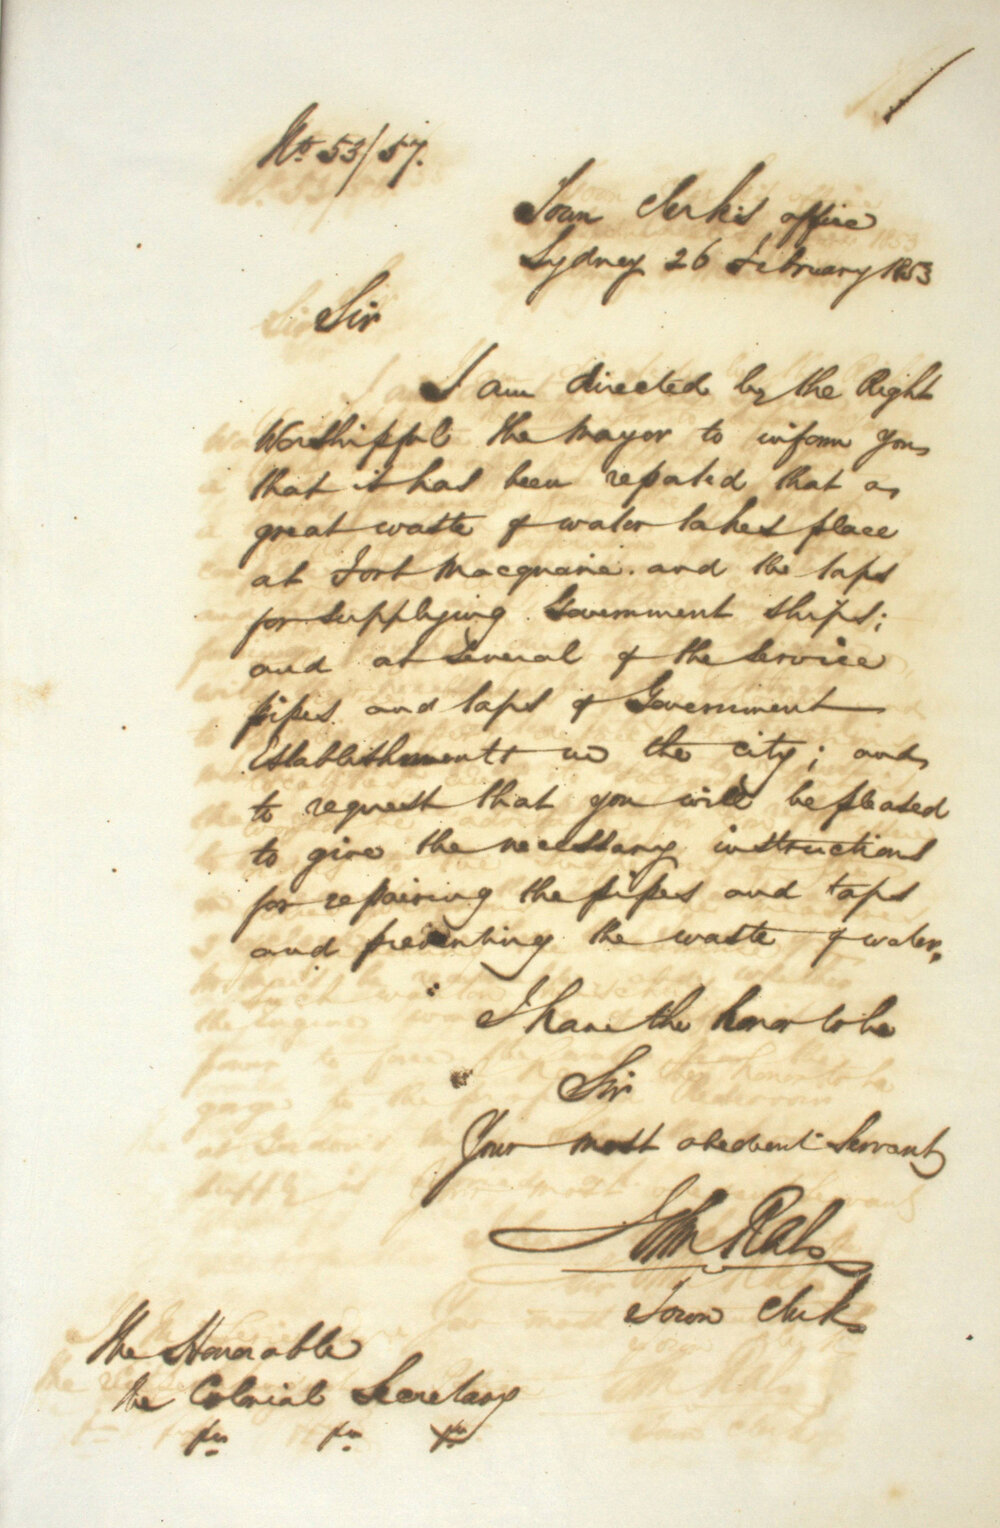 No 53/57.
Town Clerk's office
Sydney 26 February 1853
Sir
I am directed by the Right
Worshipful the Mayor to inform you
that it has been reported that a
great waste of water takes place
at Fort Macquarie. and the taps
for supplying Government Ships;
and at several of the service
pipes and taps of Government
Establishments in the city; and
to request that you will be pleased
to give the necessary instructions
for repairing the pipes and taps
and preventing the waste of water.
I have the honor to be
Sir
Your most obedient Servant
John Rae
Town Clerk
The Honorable
the Colonial Secretary